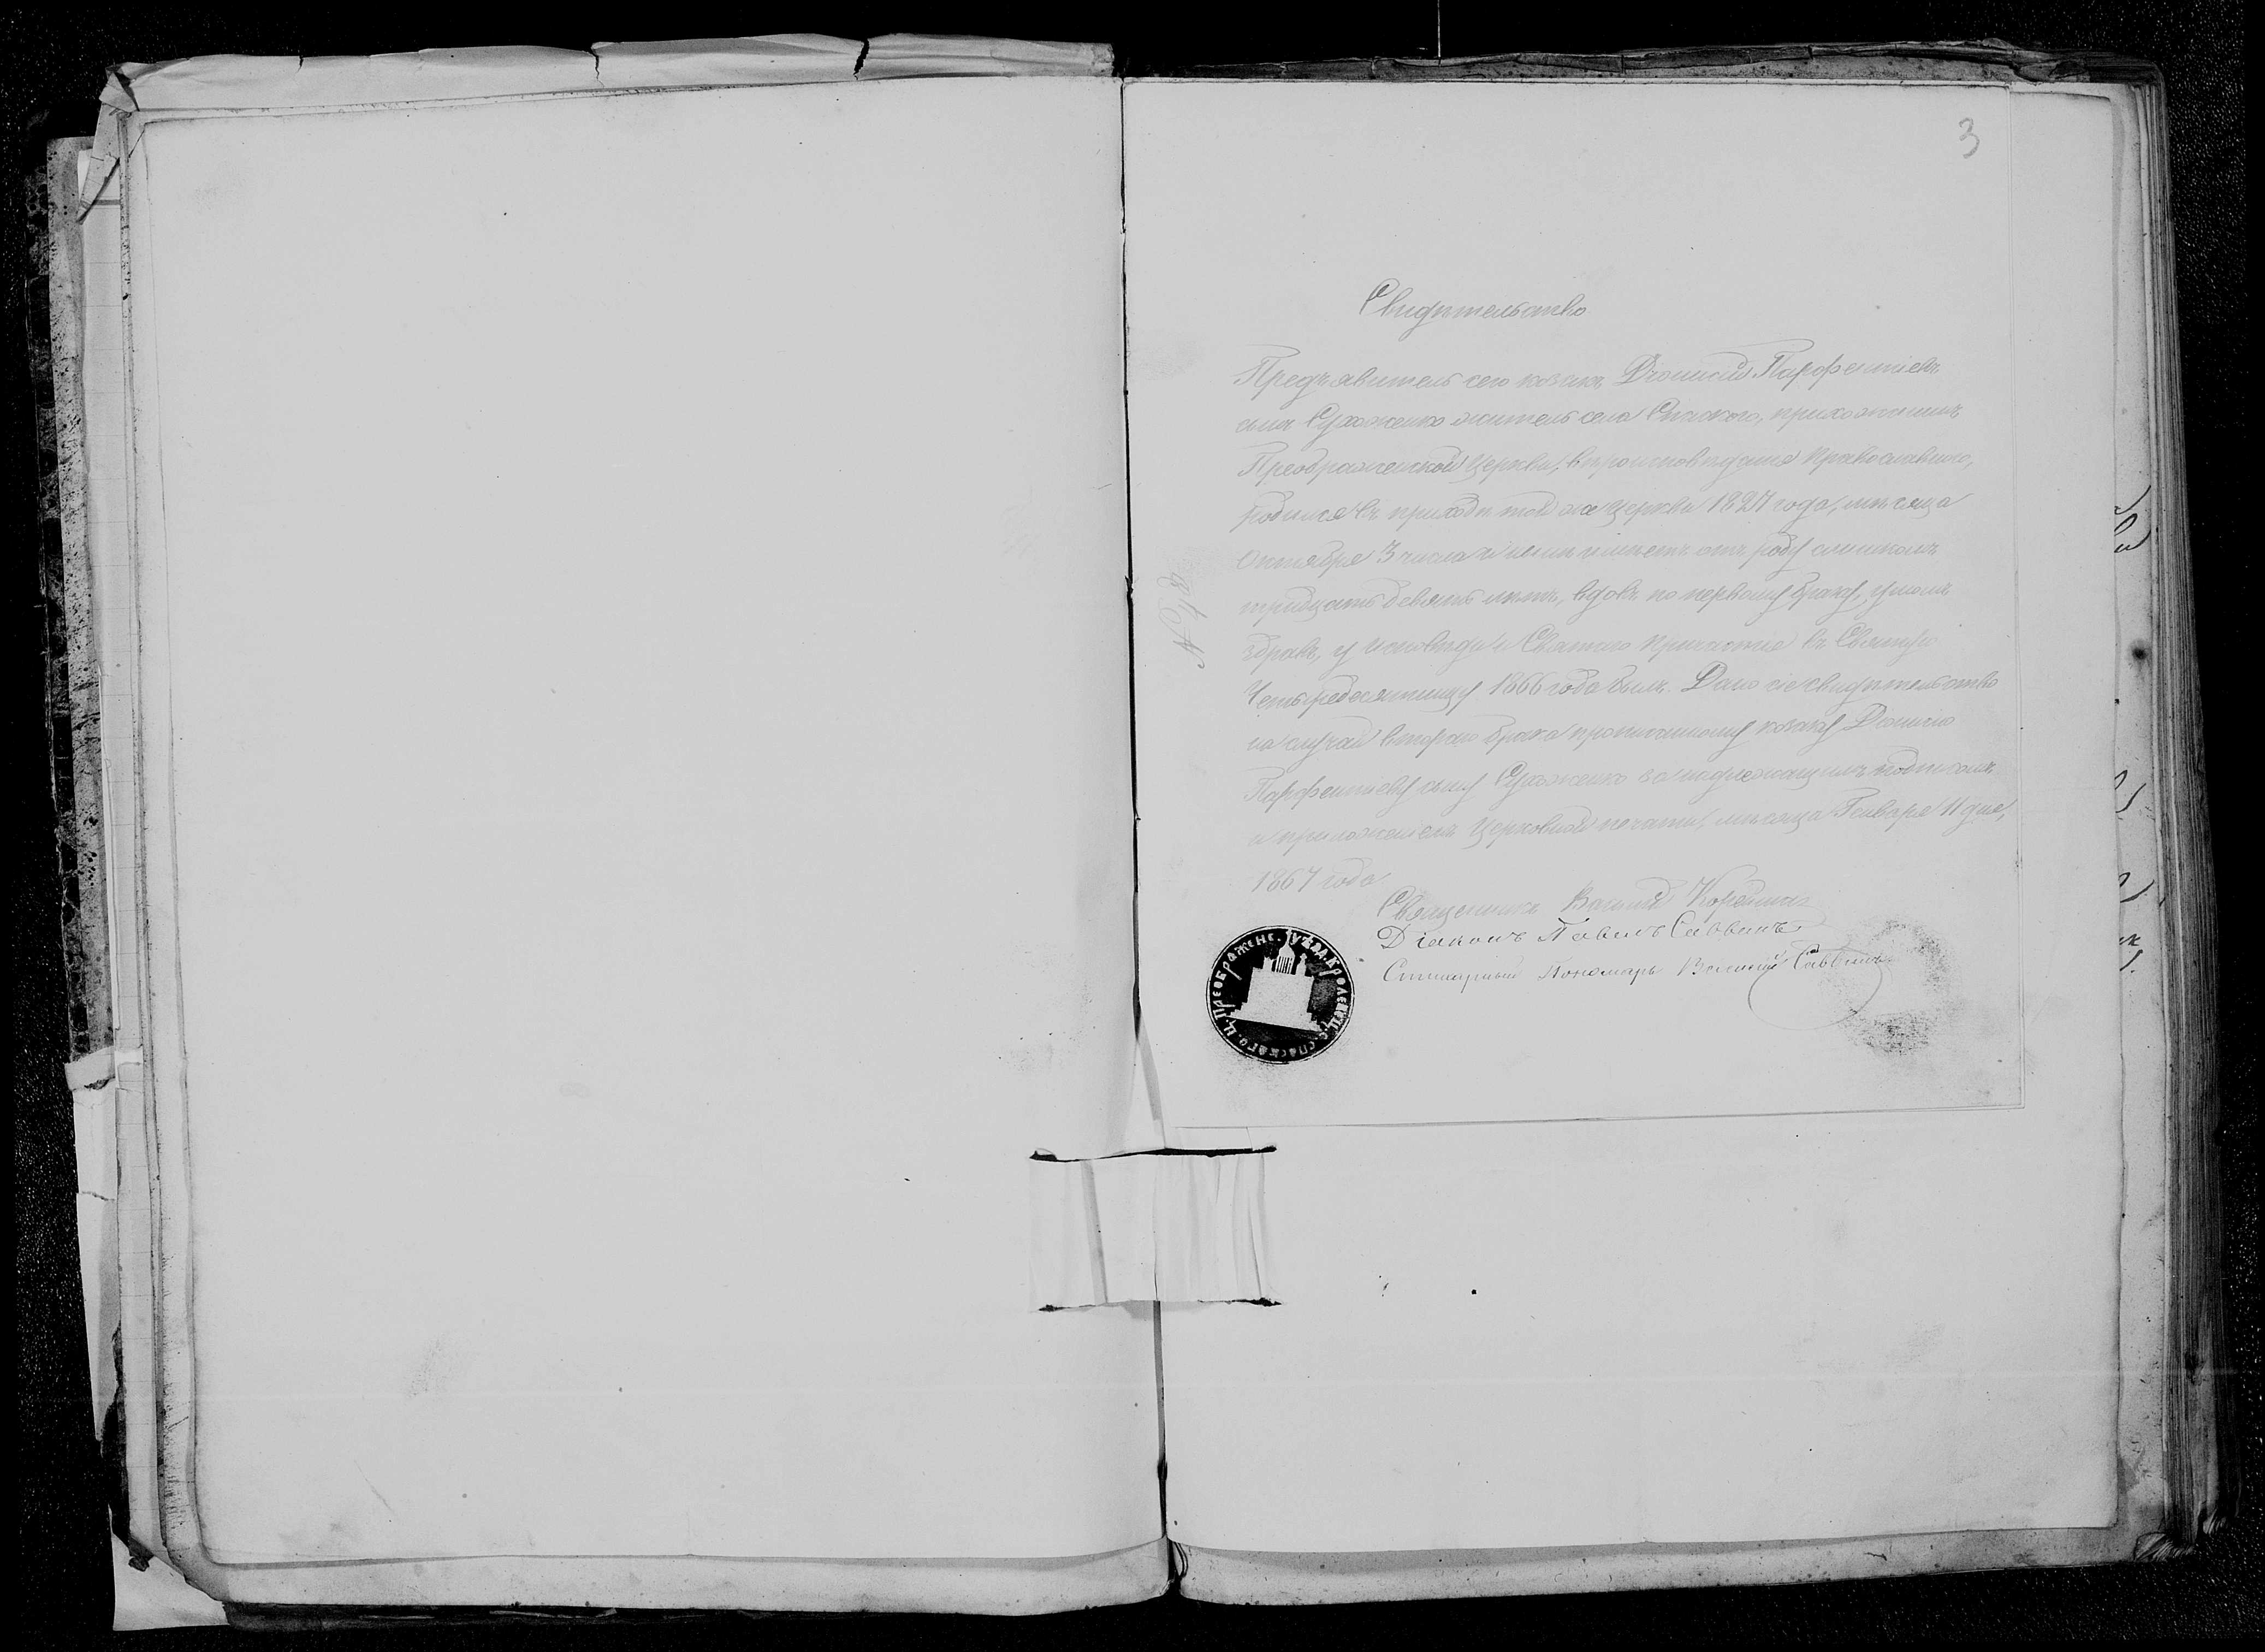 3
Свидѣтельство
Предъявитель сего козакъ Діонисій Парфентіевъ
сынъ Сухоженко житель села Спаского, прихожанинъ
Преображенской Церкви, вѣроисповѣданія Православнаго,
родился въ приходѣ той же Церкви 1827 года, мѣсяца
Октября 3 числа и нынѣ имѣетъ отъ роду
тридцать девять лѣтъ, вдовъ по первому браку, умомъ
здравъ, у исповѣди и Святаго Причастія въ Святую
Четыредесятницу 1866 года былъ. Дано сіе свидѣтельство
на случай втораго брака прописанному козаку Діонисію
Парфентіеву сыну Сухоженко за надлежащимъ подписомъ
и приложеніемъ Церковной печати, мѣсяца Генваря 11 дня,
1867 года
Священникъ Василій
Діаконъ Павелъ Саввинъ
Стихарный Пономарь Василій Саввинъ
№